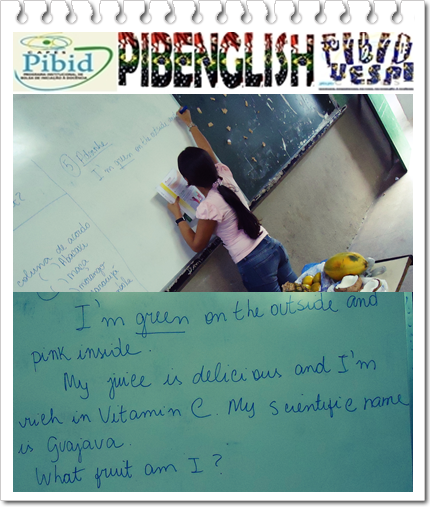 Pibid
PROGRAMA INSTITUCIONAL DE
BOLSA DE INICIAÇÃO À DOCÊNCIA
PIBENGLISH
PIBID
UESPI
I'm green on the outside
coluna de acordo
( ) Maçã
( ) Morango
I'm green on the outside and
pink inside.
My juice is delicious and I'm
rich in Vitamin C. My scientific name
is Guajava.
What fruit am I?